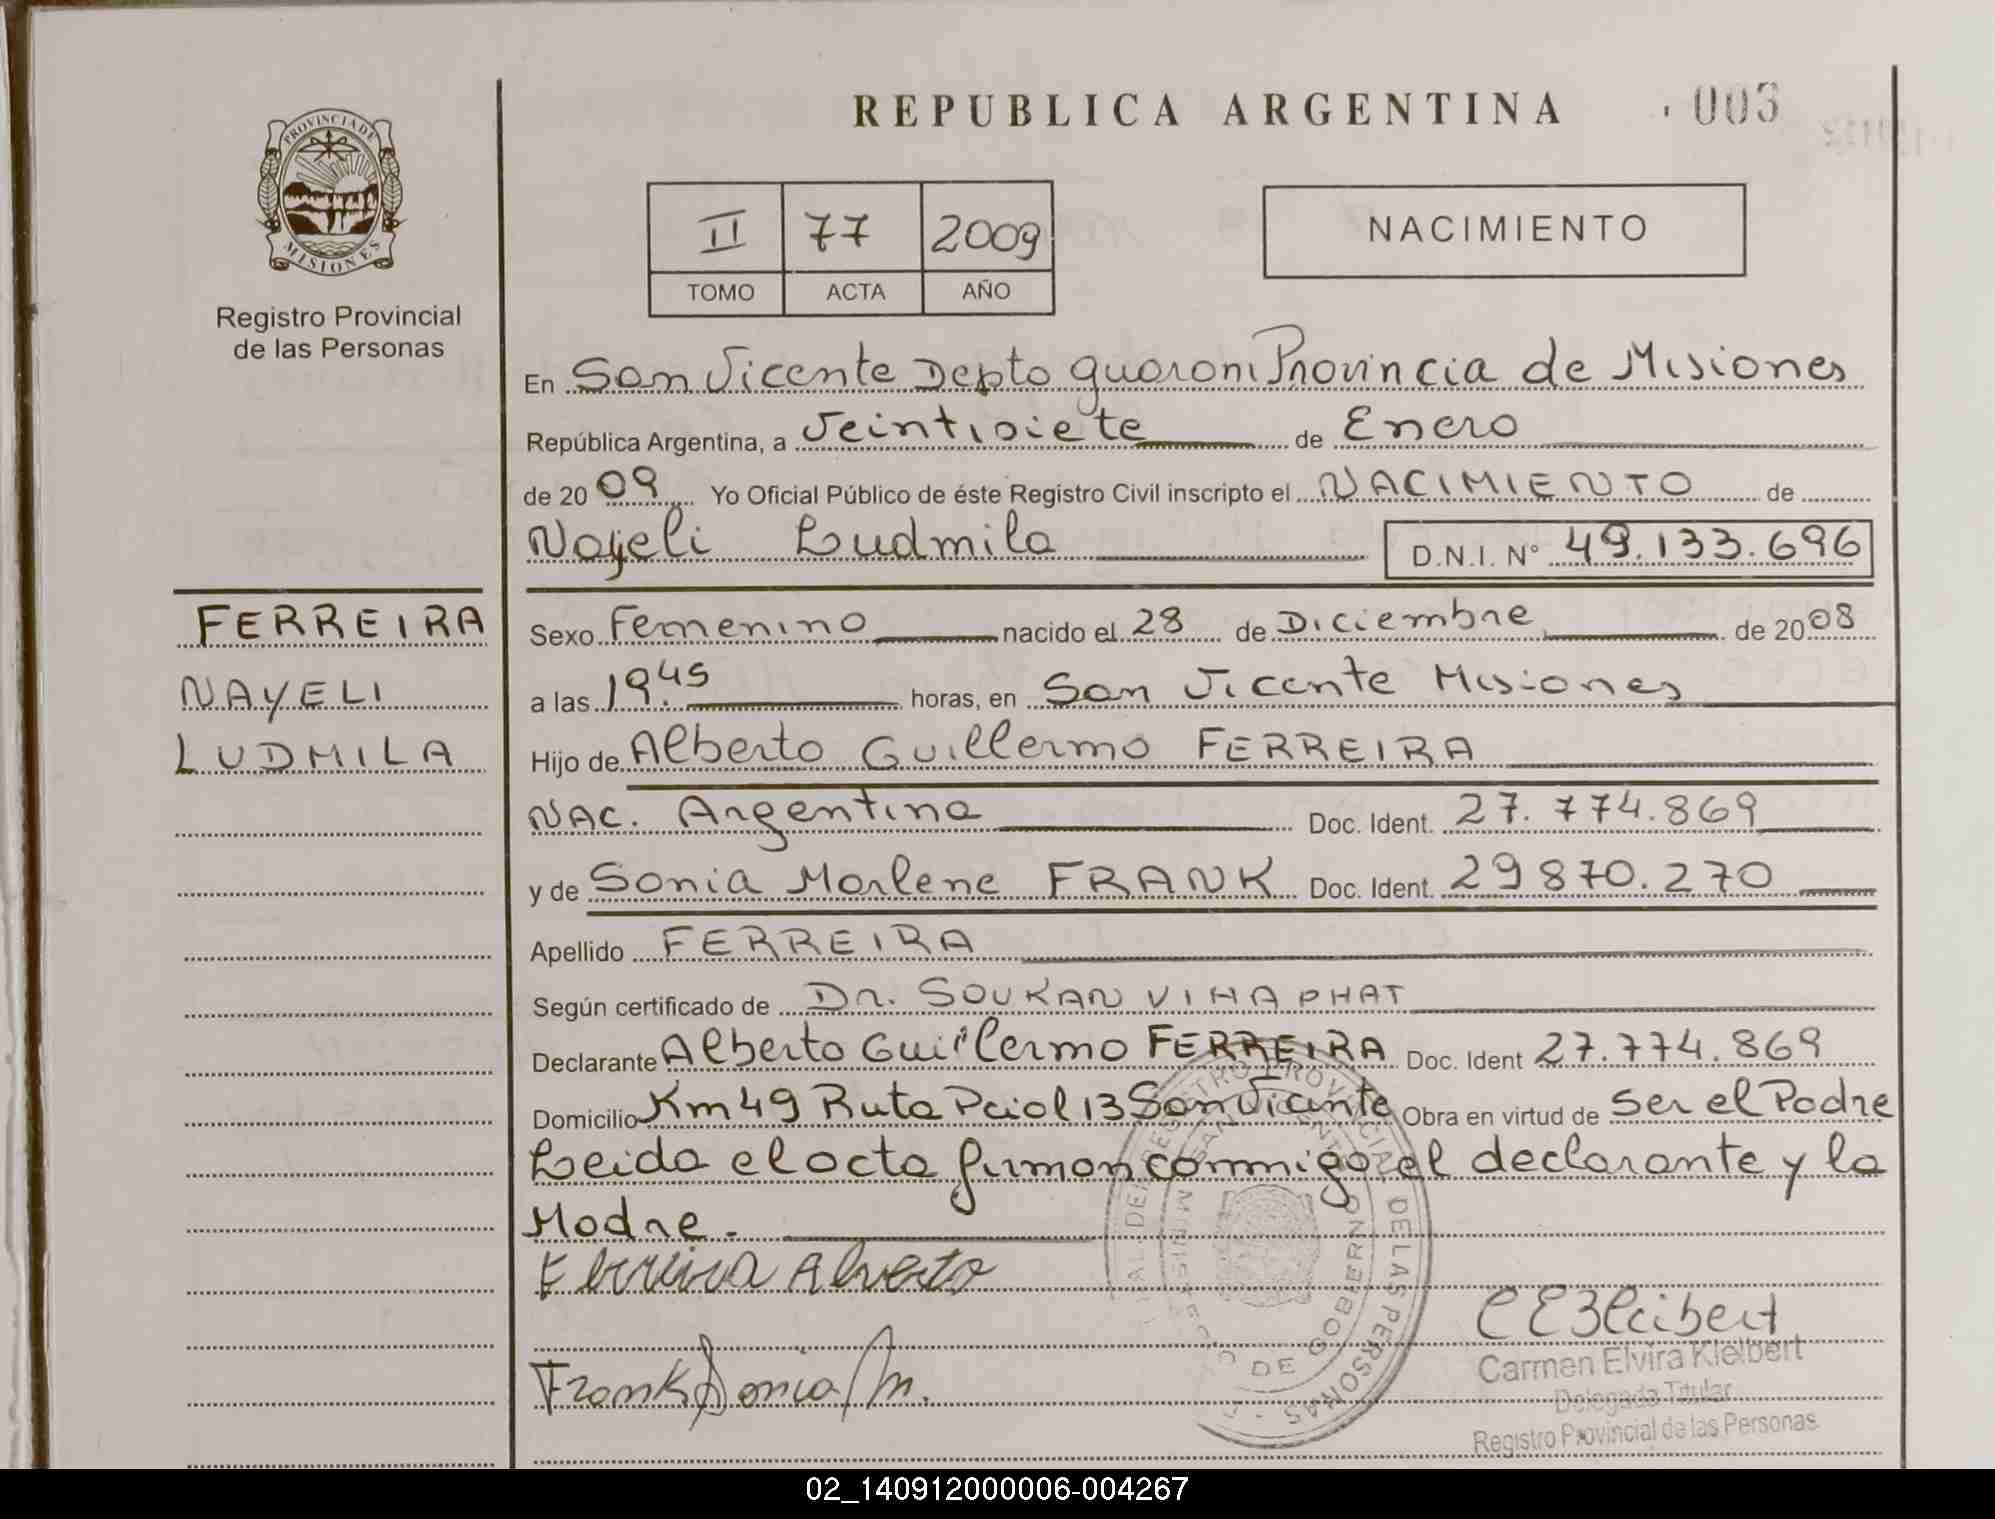 REPUBLICA ARGENTINA 003
PROVINCIA DE
MISIONES
Registro Provincial
de las Personas
II 77 2009
TOMO ACTA AÑO
NACIMIENTO
En San Vicente Depto guarani Provincia de Misiones
República Argentina, a Veintisiete de Enero
de 2009 Yo Oficial Público de éste Registro Civil inscripto el NACIMIENTO de
Nayeli Ludmila D.N.I. N° 49.133.696
FERREIRA
NAYELI
LUDMILA
Sexo Femenino nacido el 28 de Diciembre de 2008
a las 19.45 horas, en San Vicente Misiones
Hijo de Alberto Guillermo FERREIRA
NAC. Argentina Doc. Ident. 27.774.869
y de Sonia Marlene FRANK Doc. Ident. 29870.270
Apellido FERREIRA
Según certificado de Dr. SOUKAN VIHAPHAT
Declarante Alberto Guillermo FERREIRA Doc. Ident 27.774.869
Domicilio Km 49 Ruta Pcial 13 San Vicente Obra en virtud de Ser el Padre
Leida el acta firman conmigo el declarante y la
Madre.
Ferreira Alverto
Frank Sonia M.
C E Kleibert
Carmen Elvira Kleibert
Delegada Titular
Registro Provincial de las Personas
REGISTRO PROVINCIAL DE LAS PERSONAS
DE GOBIERNO
02_140912000006-004267